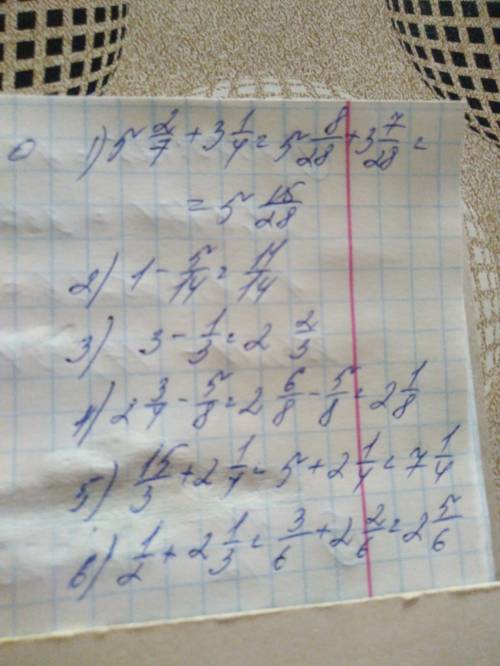 1) 5 2/7 + 3 1/4 = 5 8/28 + 3 7/28 =
= 5 15/28
2) 1 - 5/14 = 11/14
3) 3 - 1/3 = 2 2/3
4) 2 3/4 - 5/8 = 2 6/8 - 5/8 = 2 1/8
5) 15/3 + 2 1/4 = 5 + 2 1/4 = 7 1/4
6) 1/2 + 2 1/3 = 3/6 + 2 2/6 = 2 5/6